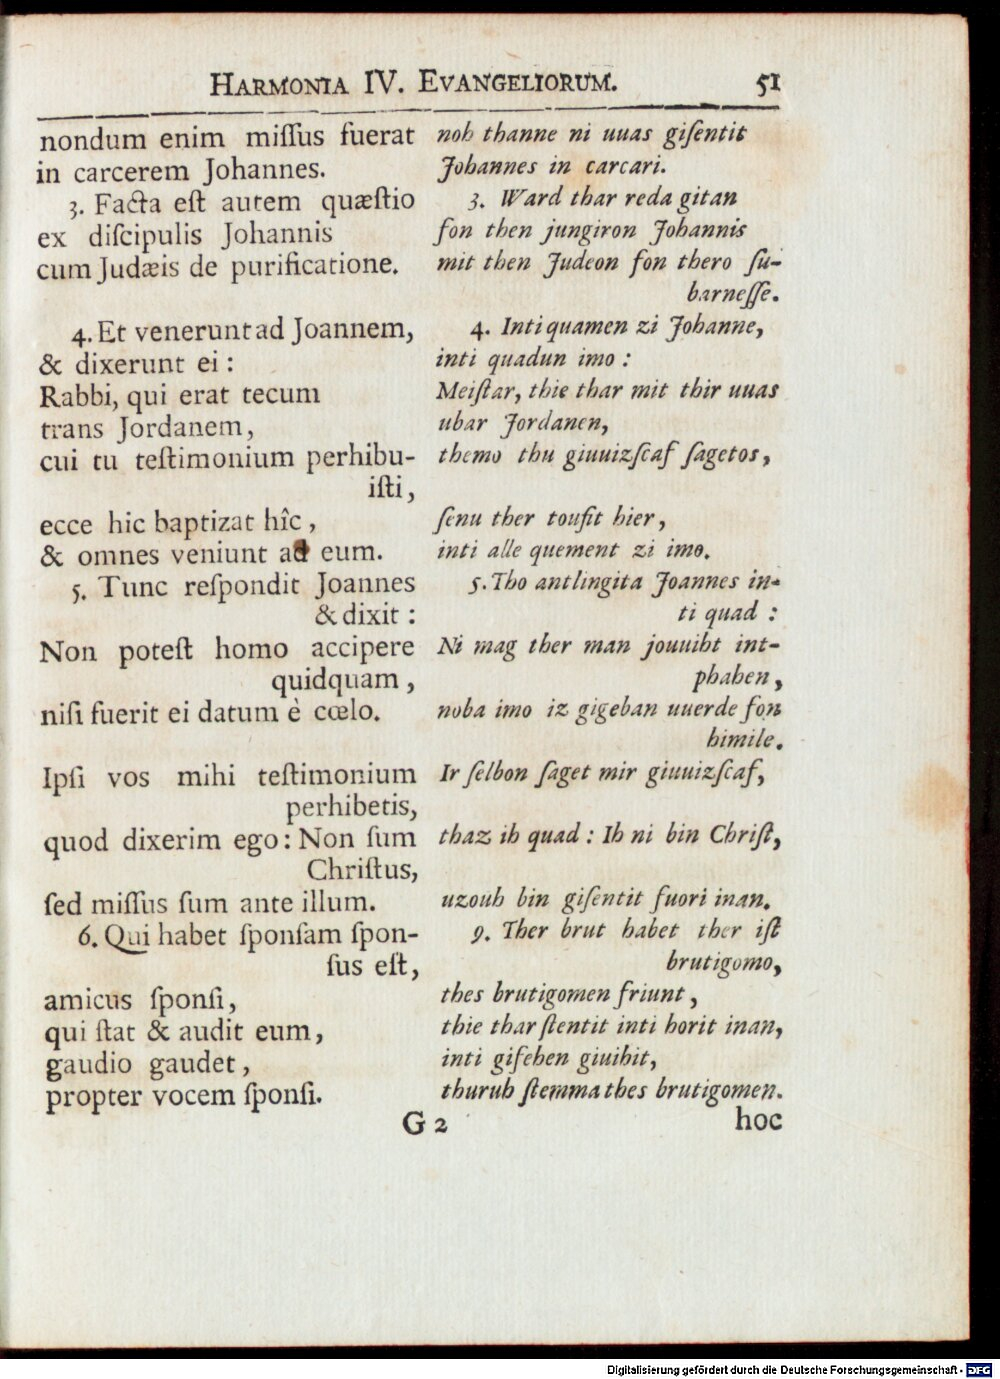 HARMONIA IV. EVANGELIORUM. 51
nondum enim miſſus fuerat
in carcerem Johannes.
3. Facta eſt autem quæſtio
ex diſcipulis Johannis
cum Judæis de purificatione.
4. Et venerunt ad Joannem,
& dixerunt ei :
Rabbi, qui erat tecum
trans Jordanem,
cui tu teſtimonium perhibu-
iſti,
ecce hic baptizat hîc,
& omnes veniunt ad eum.
5. Tunc reſpondit Joannes
& dixit :
Non poteſt homo accipere
quidquam,
niſi fuerit ei datum è cœlo.
Ipſi vos mihi teſtimonium
perhibetis,
quod dixerim ego: Non ſum
Chriſtus,
ſed miſſus ſum ante illum.
6. Qui habet ſponſam ſpon-
ſus eſt,
amicus ſponſi,
qui ſtat & audit eum,
gaudio gaudet,
propter vocem ſponſi.
noh thanne ni uuas giſentit
Johannes in carcari.
3. Ward thar reda gitan
fon then jungiron Johannis
mit then Judeon fon thero ſu-
barneſſe.
4. Inti quamen zi Johanne,
inti quadun imo :
Meiſtar, thie thar mit thir uuas
ubar Jordanen,
themo thu giuuizſcaf ſagetos,
ſenu ther toufit hier,
inti alle quement zi imo.
5. Tho antlingita Joannes in-
ti quad :
Ni mag ther man jouuiht int-
phahen,
noba imo iz gigeban uuerde fon
himile.
Ir ſelbon ſaget mir giuuizſcaf,
thaz ih quad : Ih ni bin Chriſt,
uzouh bin giſentit fuori inan.
9. Ther brut habet ther iſt
brutigomo,
thes brutigomen friunt,
thie thar ſtentit inti horit inan,
inti gifehen giuihit,
thuruh ſtemma thes brutigomen.
G 2 hoc
Digitalisierung gefördert durch die Deutsche Forschungsgemeinschaft - DFG